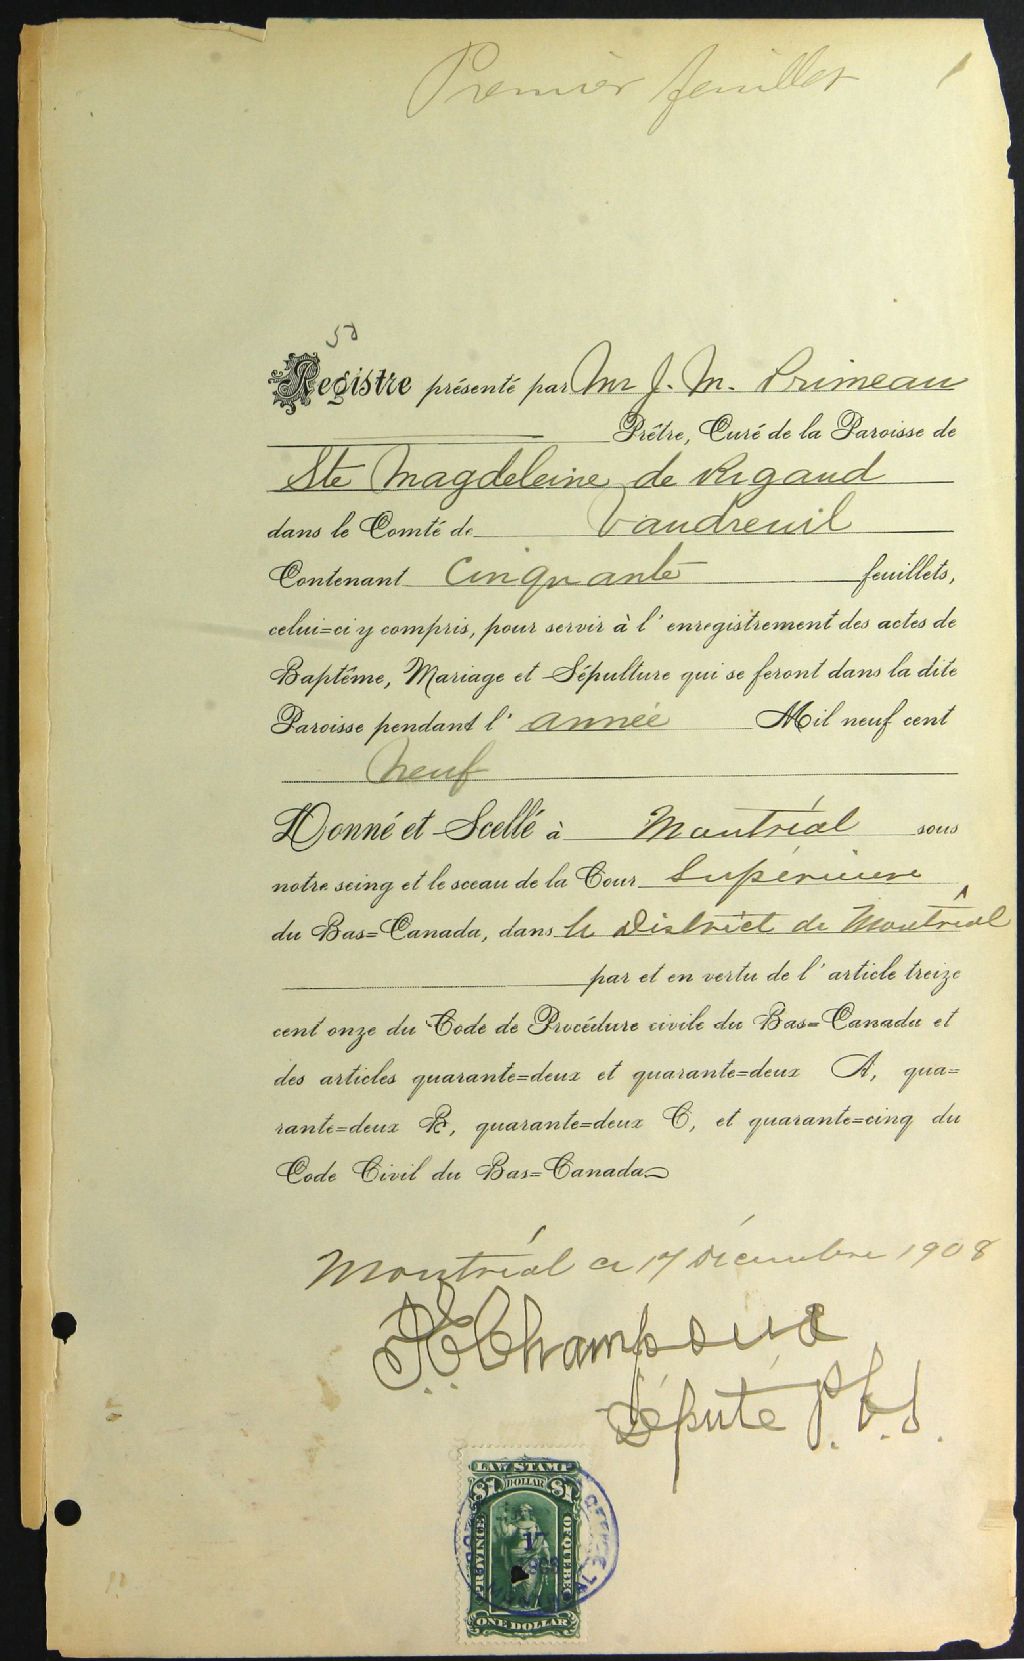 Premier feuillet 1
50
Registre présenté par Mr J. M. Primeau
Prêtre, Curé de la Paroisse de
Ste Magdeleine de Rigaud
dans le Comté de Vaudreuil
Contenant Cinquante feuillets,
celui=ci y compris, pour servir à l'enregistrement des actes de
Baptême, Mariage et Sépulture qui se feront dans la dite
Paroisse pendant l'année Mil neuf cent
Neuf
Donné et Scellé à Montréal sous
notre seing et le sceau de la Cour Supérieure
du Bas=Canada, dans le District de Montréal
par et en vertu de l'article treize
cent onze du Code de Procédure civile du Bas=Canada et
des articles quarante=deux et quarante=deux A, qua=
rante=deux B, quarante=deux C, et quarante=cinq du
Code Civil du Bas=Canada
Montréal ce 17 Décembre 1908
Champoux
Député P.C.S.
LAW STAMP
$1 DOLLAR $1
PROVINCE OF QUEBEC
17
ONE DOLLAR